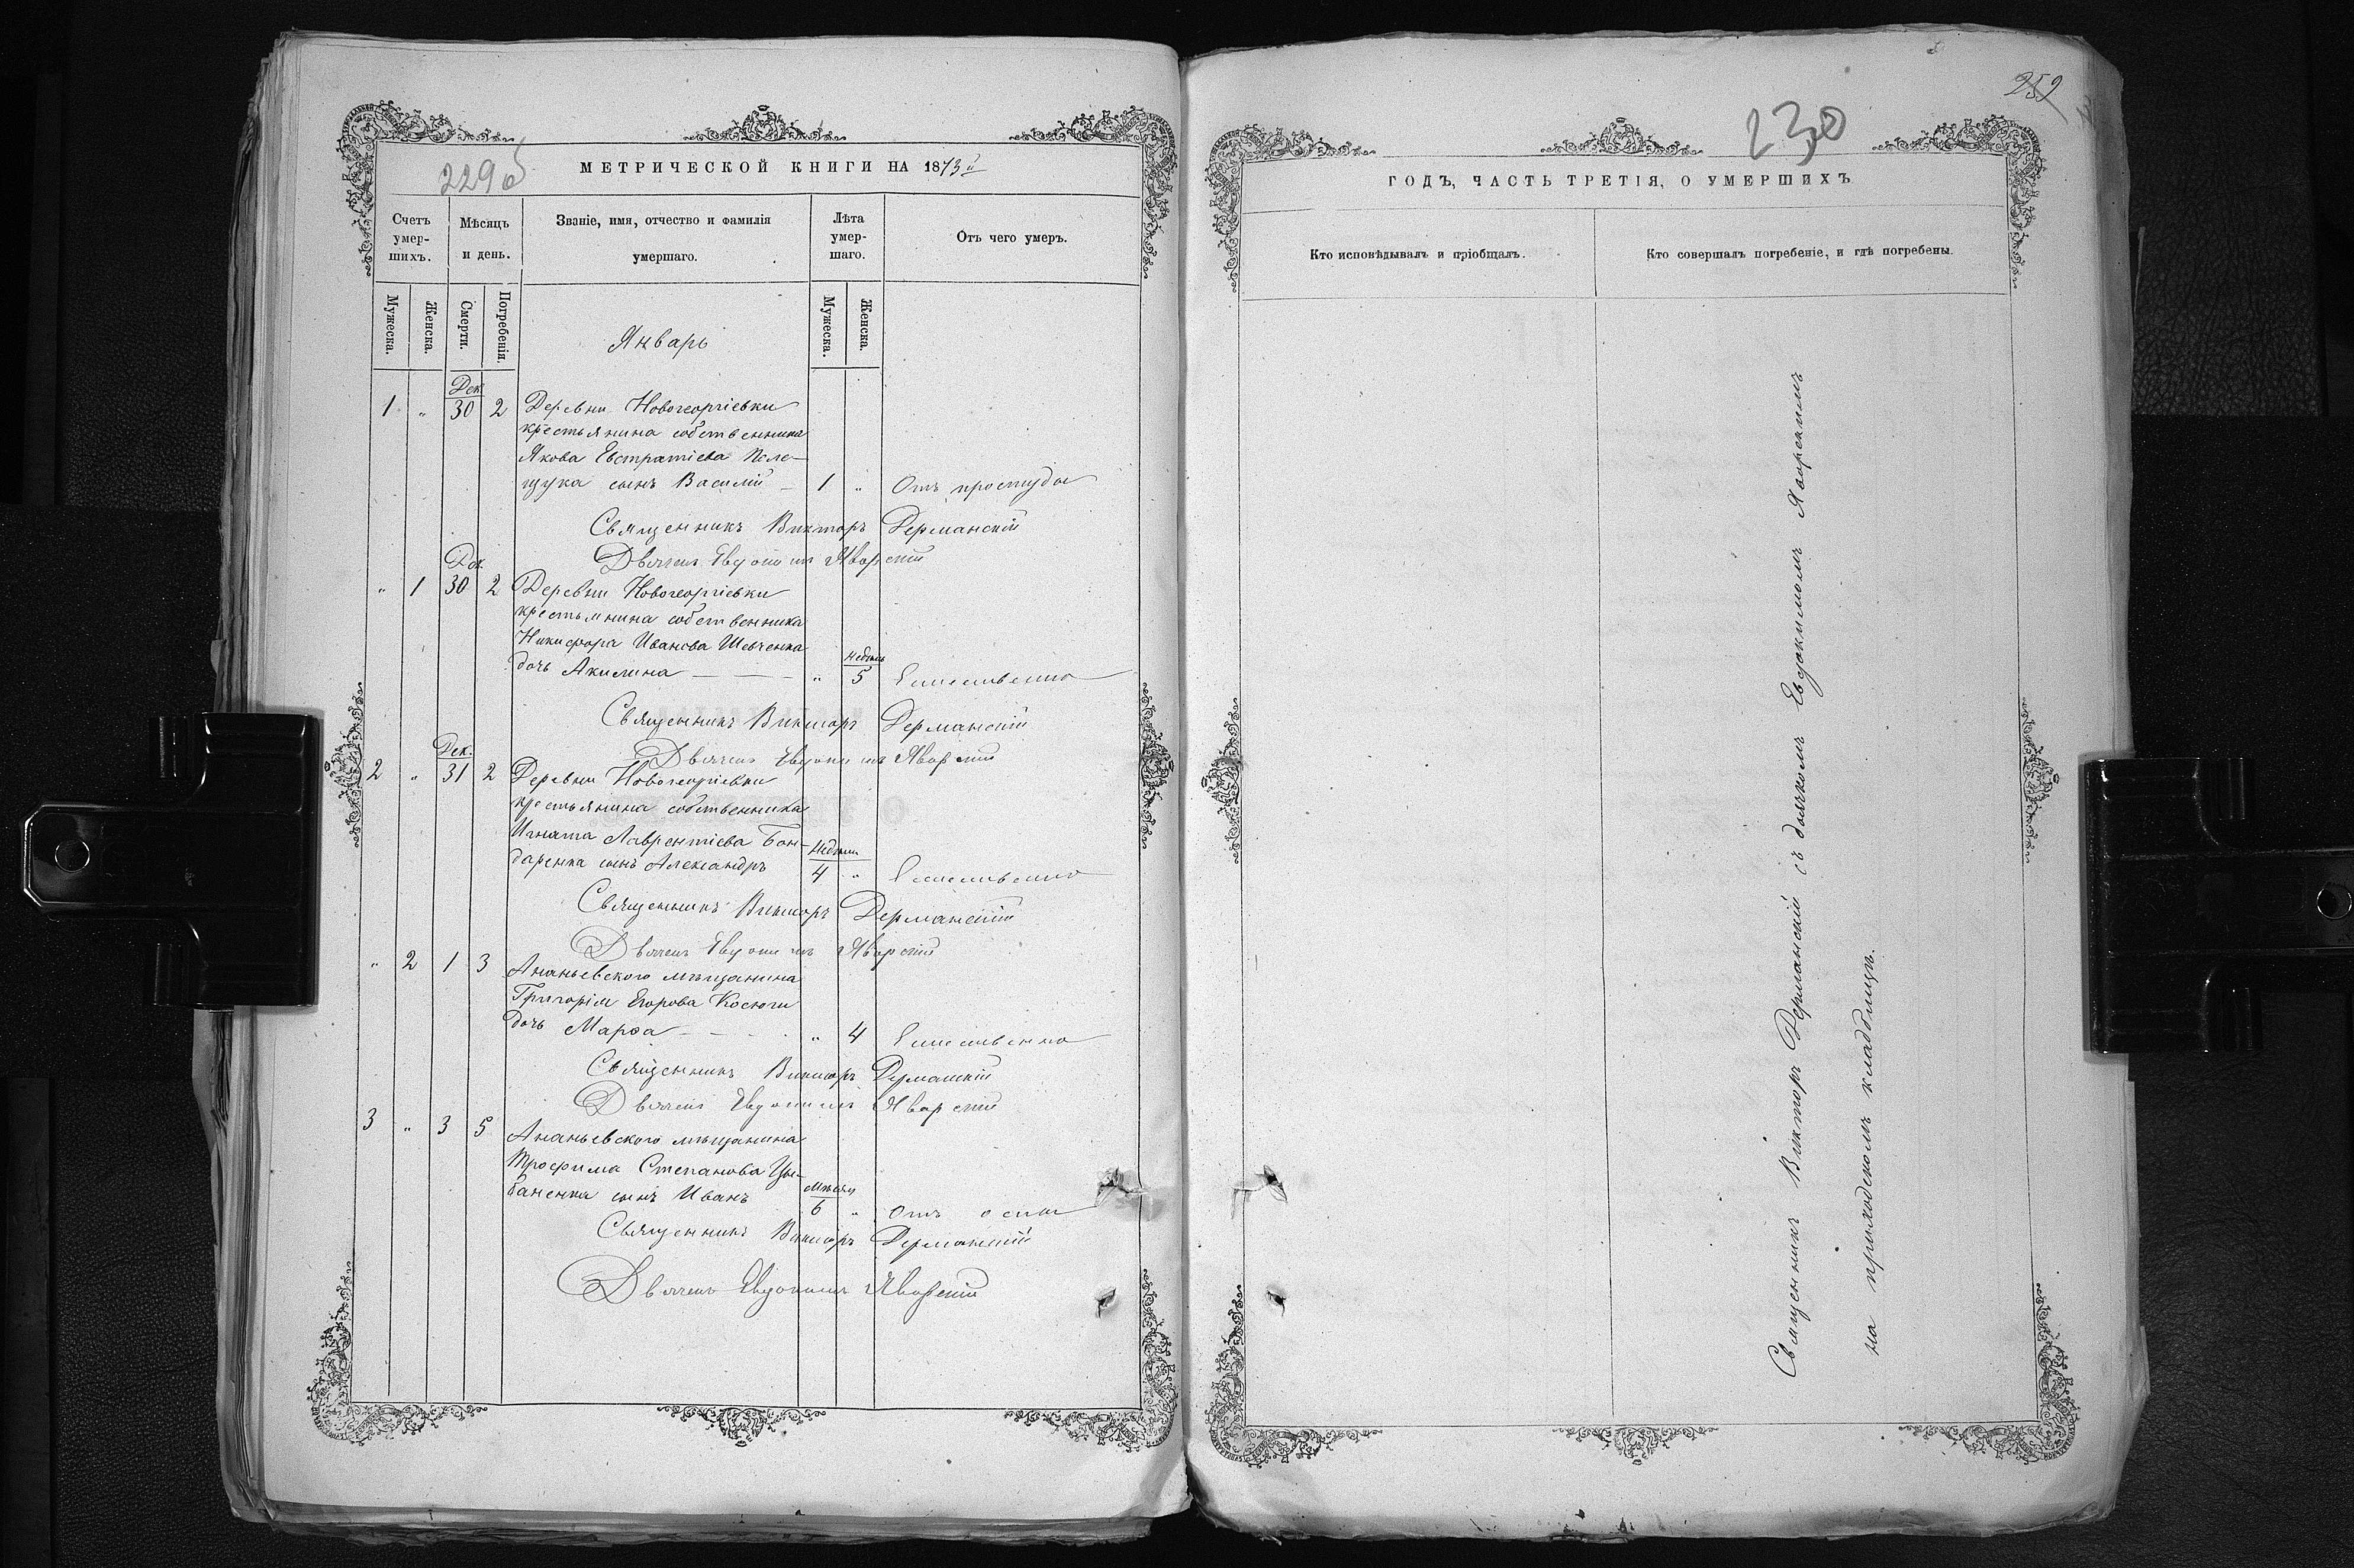 229 об
МЕТРИЧЕСКОЙ КНИГИ НА 1873й
Счетъ умер- шихъ.
Мѣсяцъ и день.
Званіе, имя, отчество и фамилія умершаго.
Лѣта умер- шаго.
Отъ чего умеръ.
Мужеска.
Женска.
Смерти.
Погребенія.
Мужеска.
Женска.
Январь
Дек.
1 " 30 2 Деревни Новогеоргіевки
крестьянина собственника
Якова Евстратіева
сынъ Василій — 1 " Отъ простуды
Священникъ Викторъ Дерманскій
Дьячекъ Евдокимъ Яворскій
Дек.
" 1 30 2 Деревни Новогеоргіевки
крестьянина собственника
Никифора Иванова Шевченка
недѣль
дочь Акилина — — — " 5 Естественно
Священникъ Викторъ Дерманскій
Дьячекъ Евдокимъ Яворскій
Дек.
2 " 31 2 Деревни Новогеоргіевки
крестьянина собственника
Игната Лаврентіева Бон-
недѣли
даренка сынъ Александръ 4 " Естественно
Священникъ Викторъ Дерманскій
Дьячекъ Евдокимъ Яворскій
" 2 1 3 Ананьевского мѣщанина
Григорія Егорова Косюги
дочь Марѳа — — " 4 Естественно
Священникъ Викторъ Дерманскій
Дьячекъ Евдокимъ Яворскій
3 " 3 5 Ананьевского мѣщанина
Трофима Степанова Цы-
баненка сынъ Иванъ 6 " Отъ оспы
Священникъ Викторъ Дерманскій
Дьячекъ Евдокимъ Яворскій
259
230
ГОДЪ, ЧАСТЬ ТРЕТІЯ, О УМЕРШИХЪ
Кто исповѣдывалъ и пріобщалъ.
Кто совершалъ погребеніе, и гдѣ погребены.
Священникъ Викторъ Дерманскій съ дьячкомъ Евдокимомъ Яворскимъ
на приходскомъ кладбищѣ.